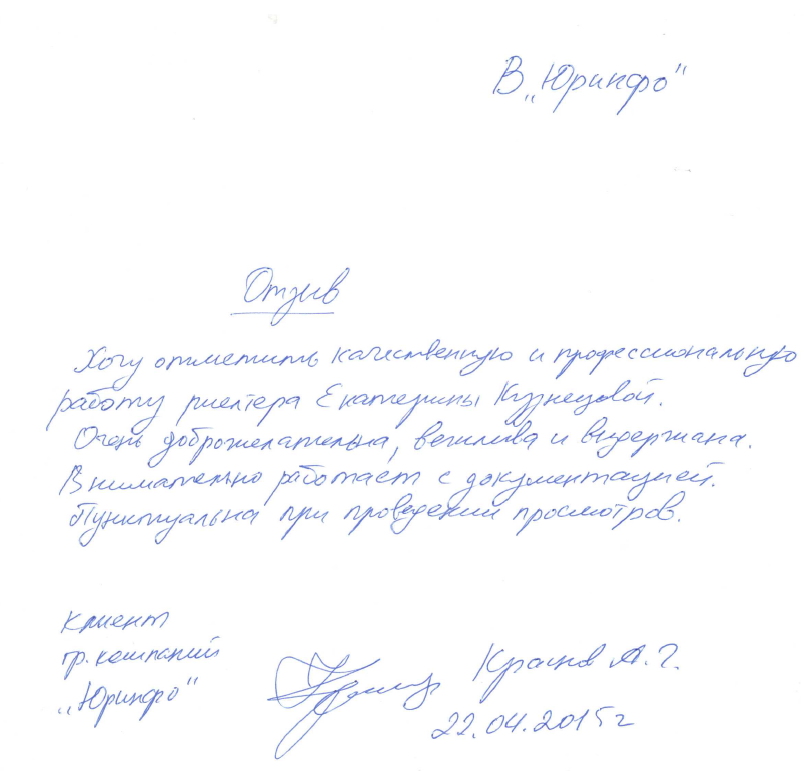 В „Юринфо"
Отзыв
Хочу отметить качественную и профессиональную
работу риелтера Екатерины Кузнецовой.
Очень доброжелательна, вежлива и выдержана.
Внимательно работает с документацией.
Пунктуальна при проведении просмотров.
клиент
гр. компаний
„Юринфо"
Краснов А.Г.
22.04.2015г